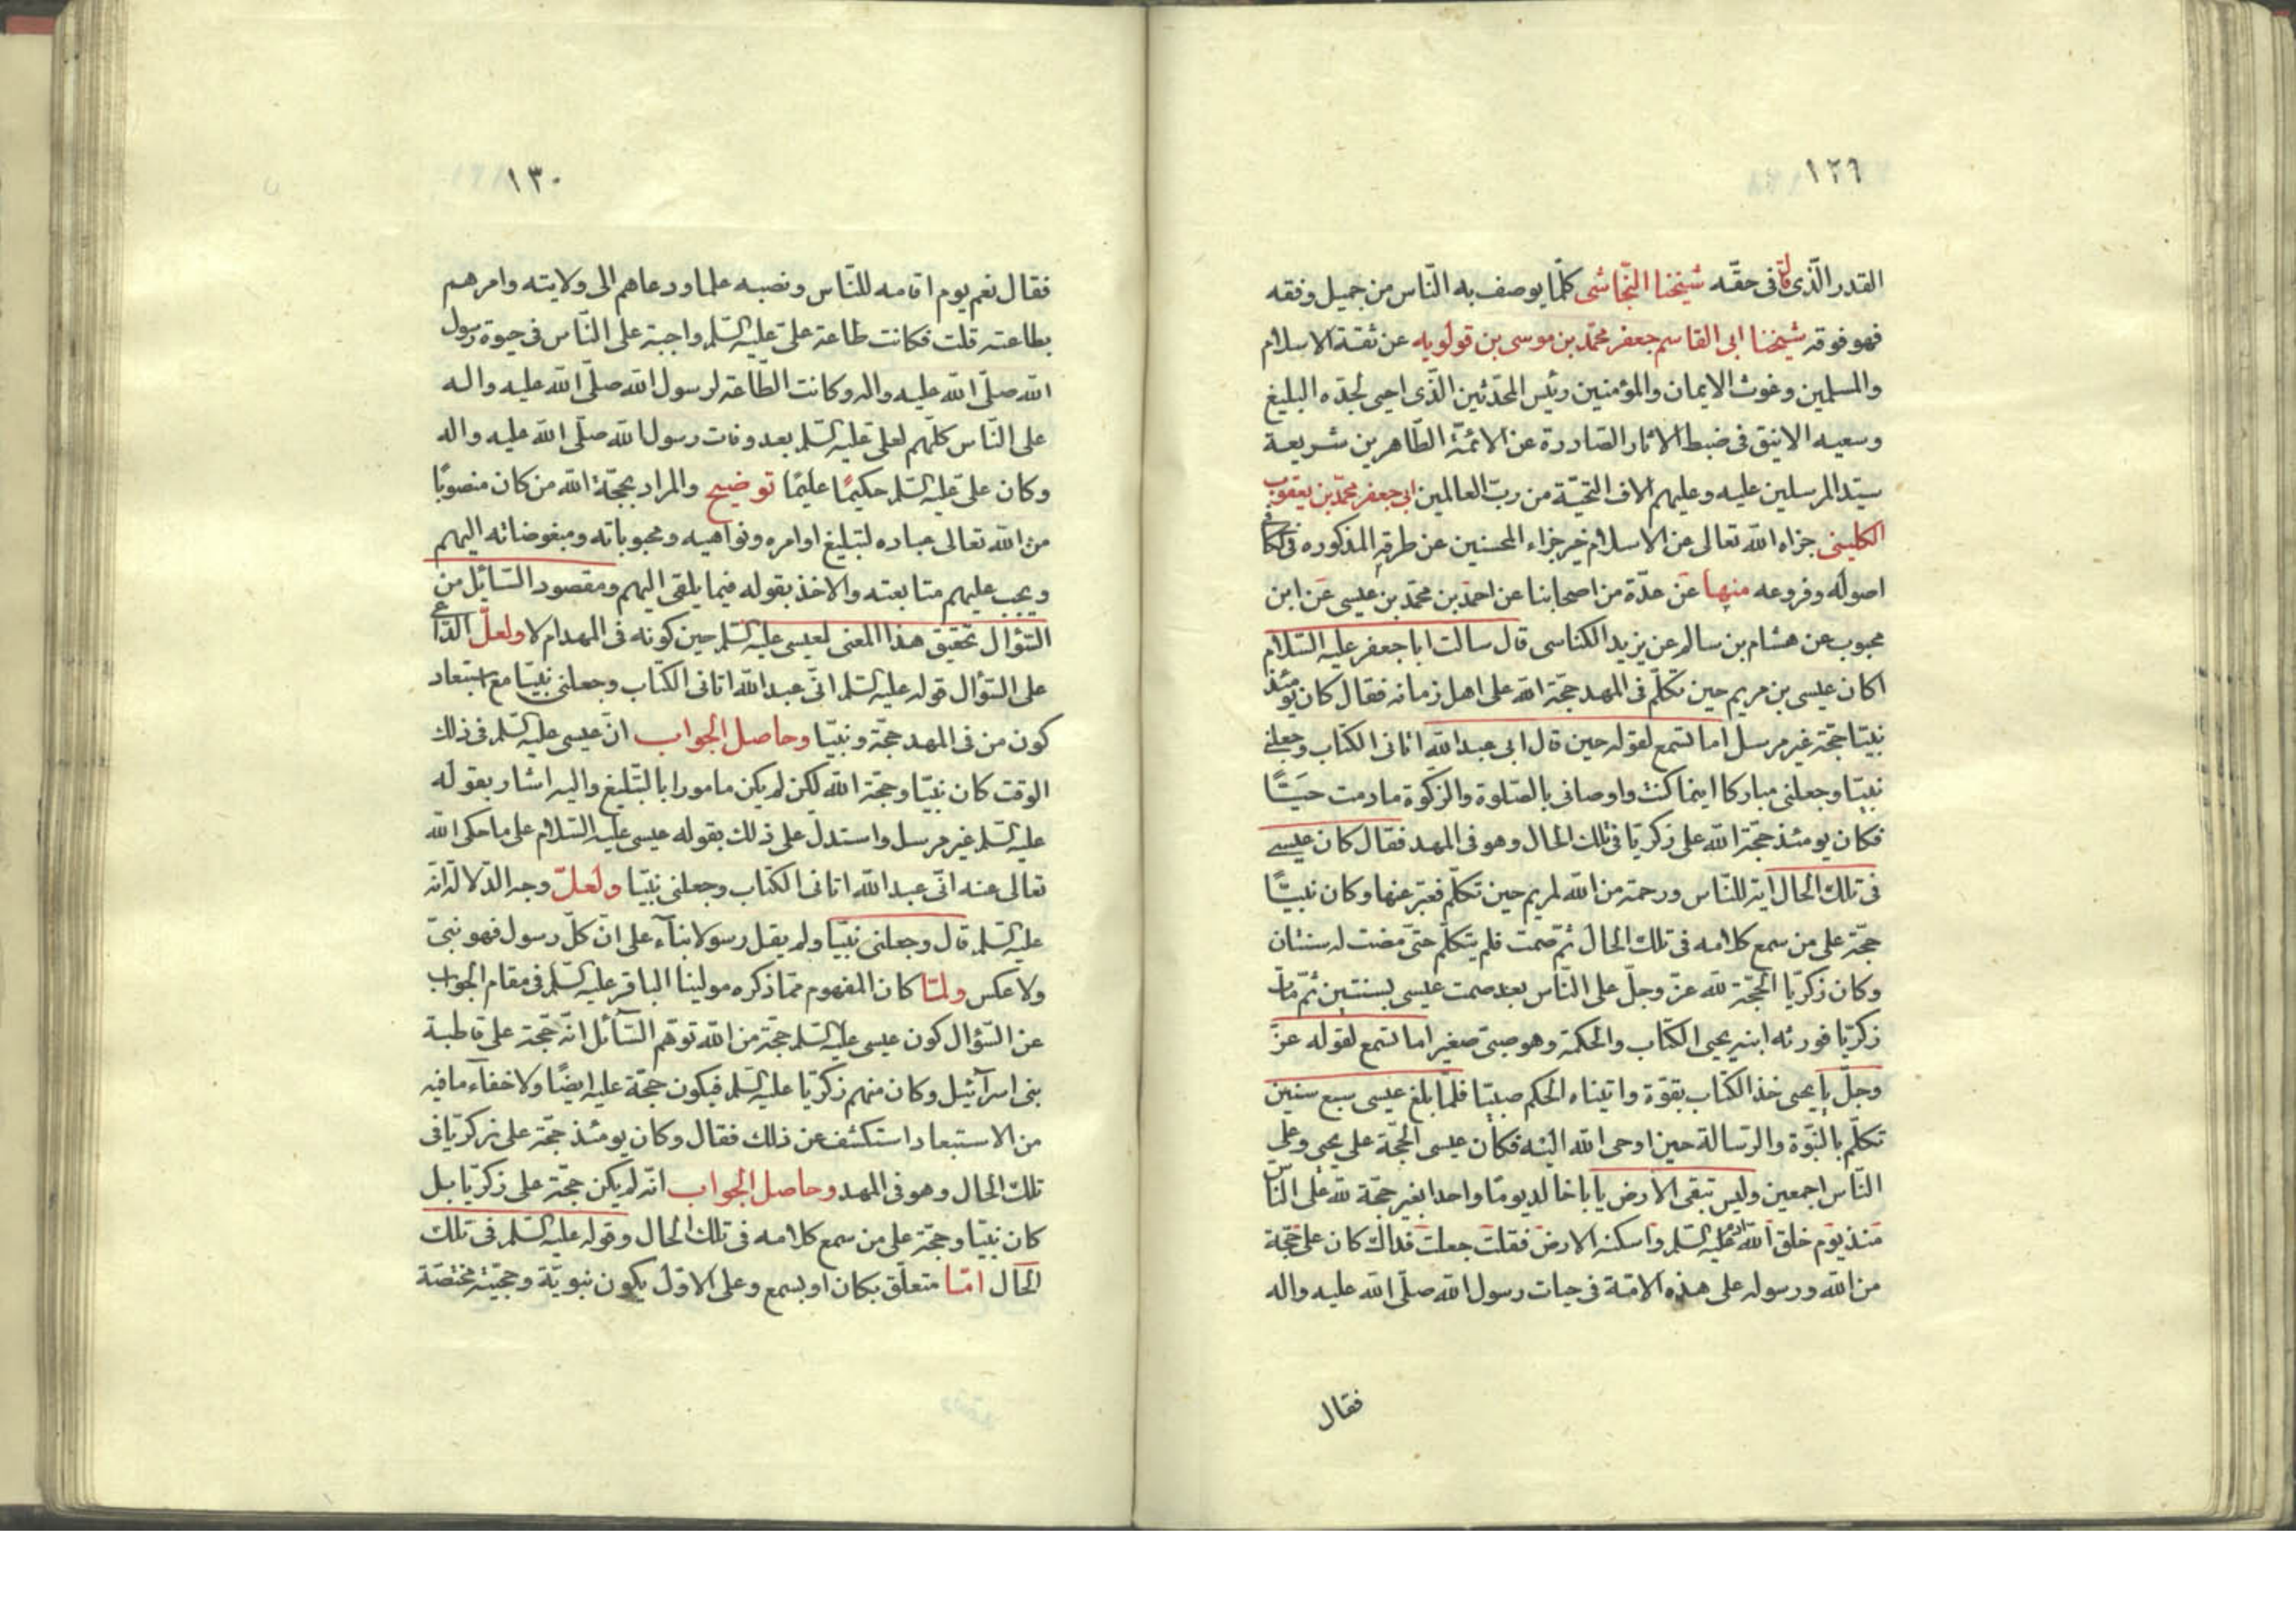 ١٢٩
القدر الّذى قال فى حقّه شيخنا النّجاشى كلّما يوصف به النّاس من جميل وفقه
فهو فوقه شيخنا ابى القاسم جعفر محمّد بن موسى بن قولويه عن ثقة الاسلام
والمسلمين وغوث الايمان والمؤمنين رئيس المحدّثين الّذى احيى لجدّه البليغ
وسعيه الانيق فى ضبط الاثار الصّادرة عن الائمّة الطّاهرين شريعة
سيّد المرسلين عليه وعليهم الاف التّحيّة من ربّ العالمين ابى جعفر محمّد بن يعقوب
الكلينى جزاه الله تعالى عن الاسلام خير جزاء المحسنين عن طرقه المذكوره فى كتاب
اصوله وفروعه منها عن عدّة من اصحابنا عن احمد بن محمّد بن عيسى عن ابن
محبوب عن هشام بن سالم عن يزيد الكناسى قال سالت ابا جعفر عليه السّلام
اكان عيسى بن مريم حين تكلّم فى المهد حجّة الله على اهل زمانه فقال كان يومئذ
نبيّا حجّة غير مرسل اما تسمع لقوله حين قال انى عبد الله اتانى الكتاب وجعلنى
نبيّا وجعلنى مباركا اينما كنت واوصانى بالصّلوة والزكوة ما دمت حيّا
فكان يومئذ حجّة الله على زكريّا فى تلك الحال وهو فى المهد فقال كان عيسى
فى تلك الحال اية للنّاس ورحمة من الله لمريم حين تكلّم فعبّر عنها وكان نبيّا
حجّة على من سمع كلامه فى تلك الحال ثمّ صمت فلم يتكلّم حتّى مضت له سنتان
وكان زكريّا الحجّة لله عزّ وجلّ على النّاس بعد صمت عيسى بسنتين ثمّ مات
زكريّا فورثه ابنه يحيى الكتاب والحكمة وهو صبىّ صغير اما تسمع لقوله عزّ
وجلّ يا يحيى خذ الكتاب بقوّة واتيناه الحكم صبيّا فلمّا بلغ عيسى سبع سنين
تكلّم بالنّبوّة والرّسالة حين اوحى الله اليه فكان عيسى الحجّة على يحيى وعلى
النّاس اجمعين وليس تبقى الارض يا ابا خالد يوما واحدا بغير حجّة لله على النّاس
منذ يوم خلق الله ادم عليه السّلم واسكنه الارض فقلت جعلت فداك كان على حجّة
من الله ورسوله على هذه الامّة فى حيات رسول الله صلّى الله عليه واله
فقال
١٣٠
فقال نعم يوم اقامه للنّاس ونصبه علما ودعاهم الى ولايته وامرهم
بطاعته قلت فكانت طاعة علىّ عليه السّلم واجبة على النّاس فى حيوة رسول
الله صلّى الله عليه واله وكانت الطّاعة لرسول الله صلّى الله عليه واله
على النّاس كلّهم لعلى عليه السّلم بعد وفات رسول الله صلّى الله عليه واله
وكان على عليه السّلم حكيمًا عليمًا توضيح والمراد بحجّة الله من كان منصوبًا
من الله تعالى عباده لتبليغ اوامره ونواهيه ومحبوباته ومبغوضاته اليهم
ويجب عليهم متابعته والاخذ بقوله فيما يلقى اليهم ومقصود السّائل من
السّؤال تحقيق هذا المعنى لعيسى عليه السّلم حين كونه فى المهد ام لا ولعلّ الدّاعى
على السّؤال قوله عليه السّلم انّى عبد الله اتانى الكتاب وجعلنى نبيّا مع استبعاد
كون من فى المهد حجّة ونبيّا وحاصل الجواب انّ عيسى عليه السّلم فى ذلك
الوقت كان نبيّا وحجّة الله لكن لم يكن مامورا بالتّبليغ واليه اشار بقوله
عليه السّلم غير مرسل واستدلّ على ذلك بقوله عيسى عليه السّلام على ما حكى الله
تعالى عنه انّى عبد الله اتانى الكتاب وجعلنى نبيّا ولعلّ وجه الدّلالة انّه
عليه السّلم قال وجعلنى نبيّا ولم يقل رسولا بناء على انّ كلّ رسول فهو نبىّ
ولا عكس ولمّا كان المفهوم ممّا ذكره مولينا الباقر عليه السّلم فى مقام الجواب
عن السّؤال كون عيسى عليه السّلم حجّة من الله توهّم السّائل انّه حجّة على قاطبة
بنى اسرآئيل وكان منهم زكريّا عليه السّلم فيكون حجّة عليه ايضًا ولا خفآء ما فيه
من الاستبعاد استكشف عن ذلك فقال وكان يومئذ حجّة على زكريّا فى
تلك الحال وهو فى المهد وحاصل الجواب انّه لم يكن حجّة على زكريّا بل
كان نبيّا وحجّة على من سمع كلامه فى تلك الحال وقوله عليه السّلم فى تلك
الحال امّا متعلّق بكان او بسمع وعلى الاوّل يكون نبويّة وحجّيّته مختصّة